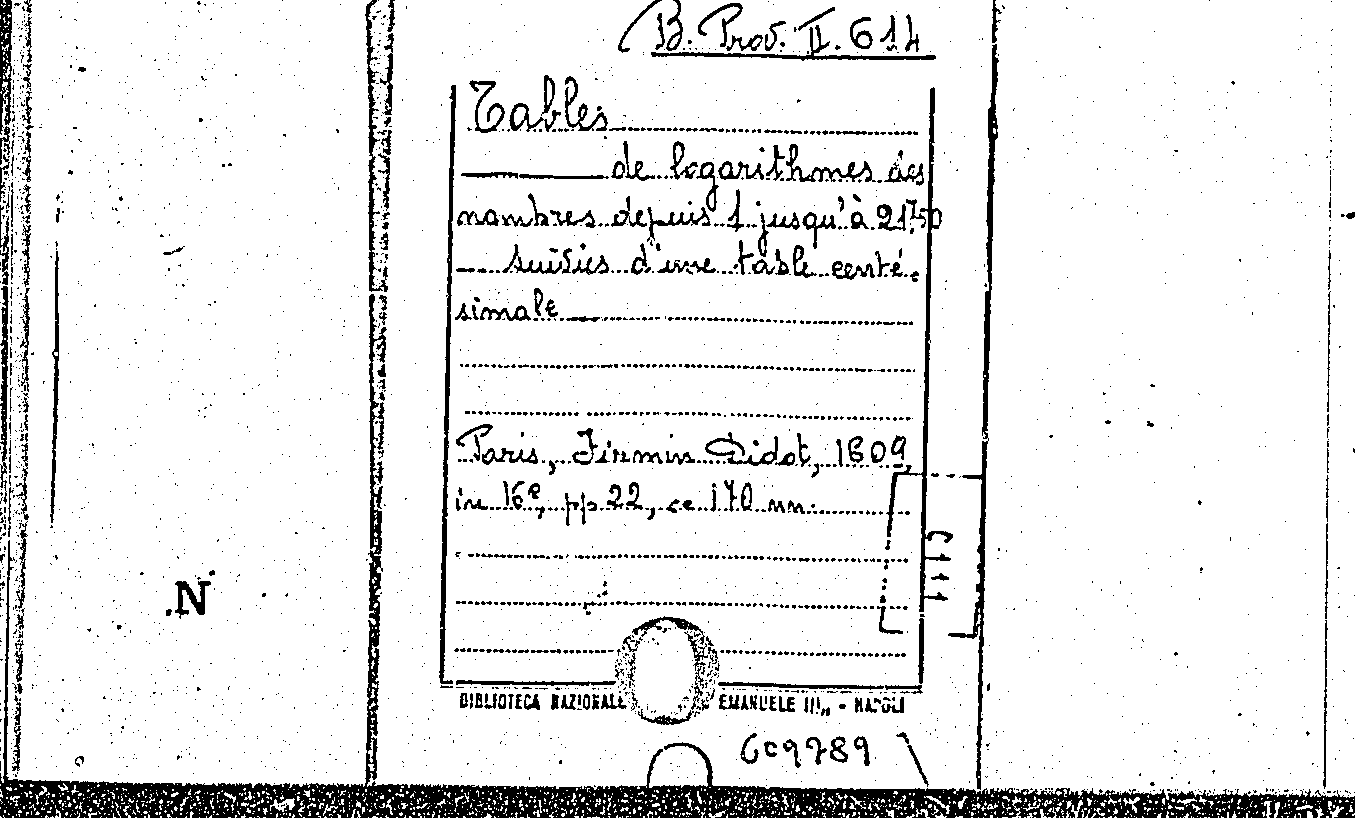 B. Prov. II. 614
Tables
de logarithmes des
nombres depuis 1 jusqu'à 21750
suivies d'une table centé-
simale
Paris, Firmin Didot, 1809,
in 16°, pp 22, ce 170 nn.
.N
BIBLIOTECA NAZIONALE EMANUELE III„ - NAPOLI
609789